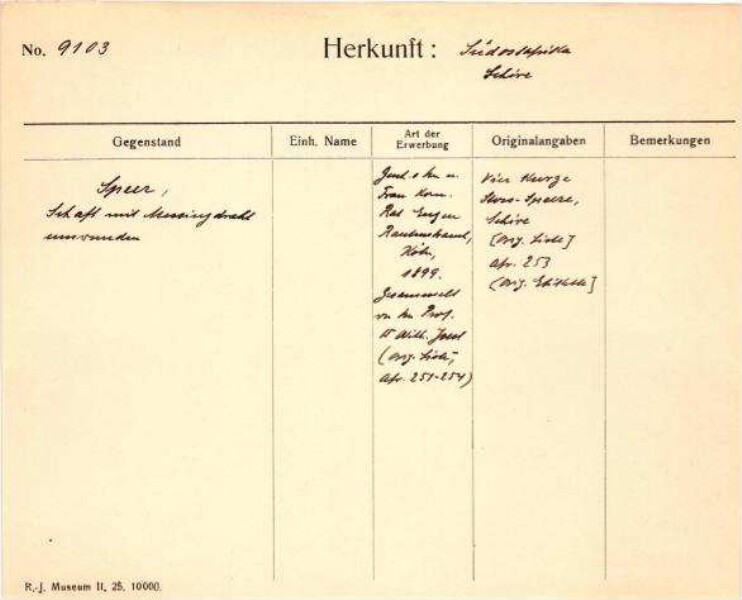 No. 9103
Herkunft: Südostafrika
Schire
Gegenstand
Einh. Name
Art der
Erwerbung
Originalangaben
Bemerkungen
Speer,
Schaft mit Messingdraht
umwunden
Gesch. v. Hn u.
Frau Kom.
Rat Eugen
Rautenstrauch,
Köln,
1899.
Gesammelt
von Hn Prof.
Dr Wilh. Joest
(Orig. Liste,
Afr. 251-254)
Vier kurze
Stoss-Speere,
Schire
[Orig. Liste]
Afr. 253
[Orig. Etikette]
R.-J. Museum II. 25. 10000.